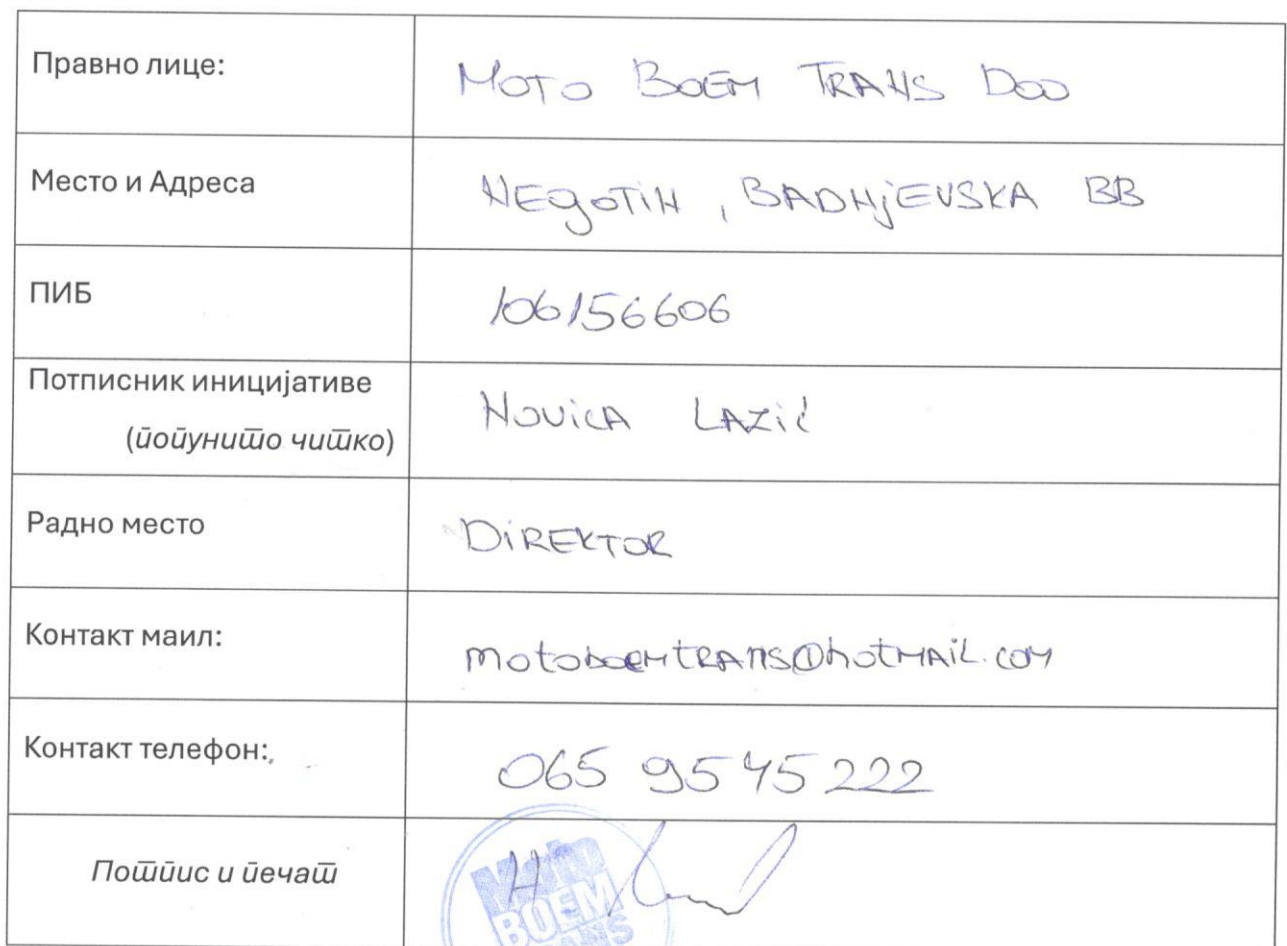 Правно лице:
MOTO BOEM TRANS DOO
Место и Адреса
NEGOTIN, BADNjEVSKA BB
ПИБ
106156606
Потписник иницијативе
(попунито читко)
NOViCA LAZiĆ
Радно место
DiREKTOR
Контакт маил:
motoboemtRANS@hotmAiL.com
Контакт телефон:
065 9545222
Потпис и печат
Moto
BOEM
TRANS